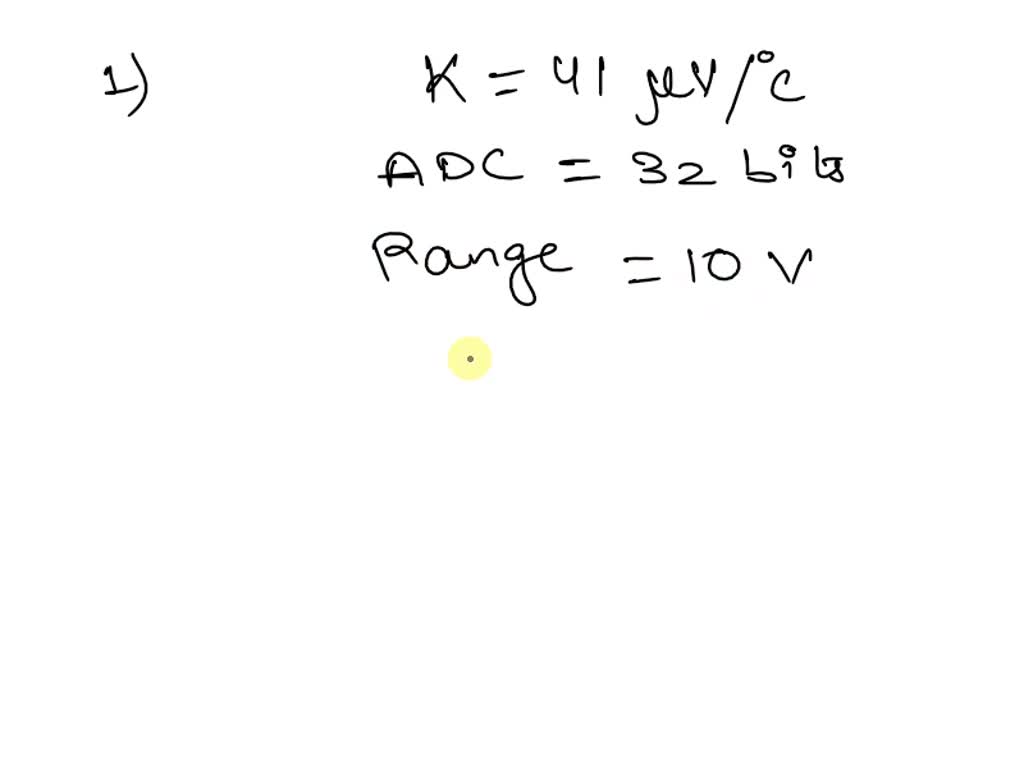 1) K = 41 μV/°C
ADC = 32 bits
Range = 10 V